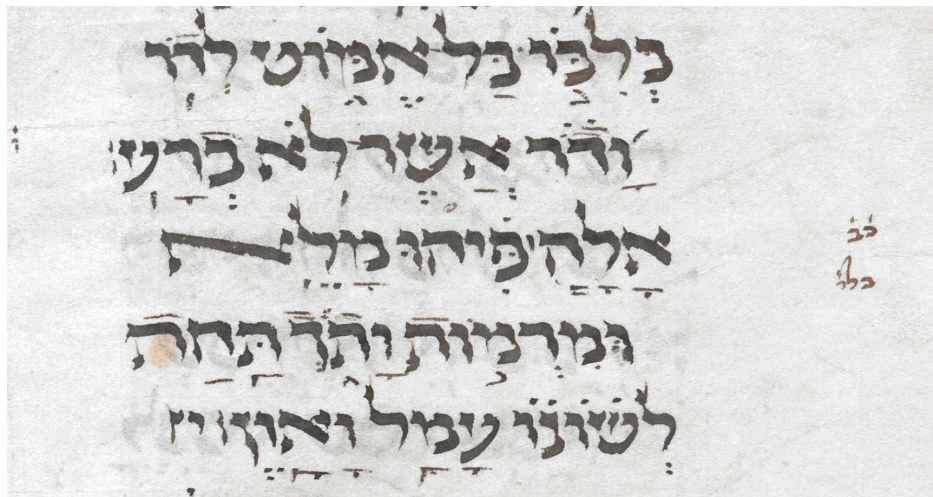 בְּלִבּוֹ בַּל אֶמּוֹט לְדֹר
וָדֹר אֲשֶׁר לֹא בְרָע׃
אָלָה פִּיהוּ מָלֵא
וּמִרְמוֹת וָתֹךְ תַּחַת
לְשׁוֹנוֹ עָמָל וָאָוֶן